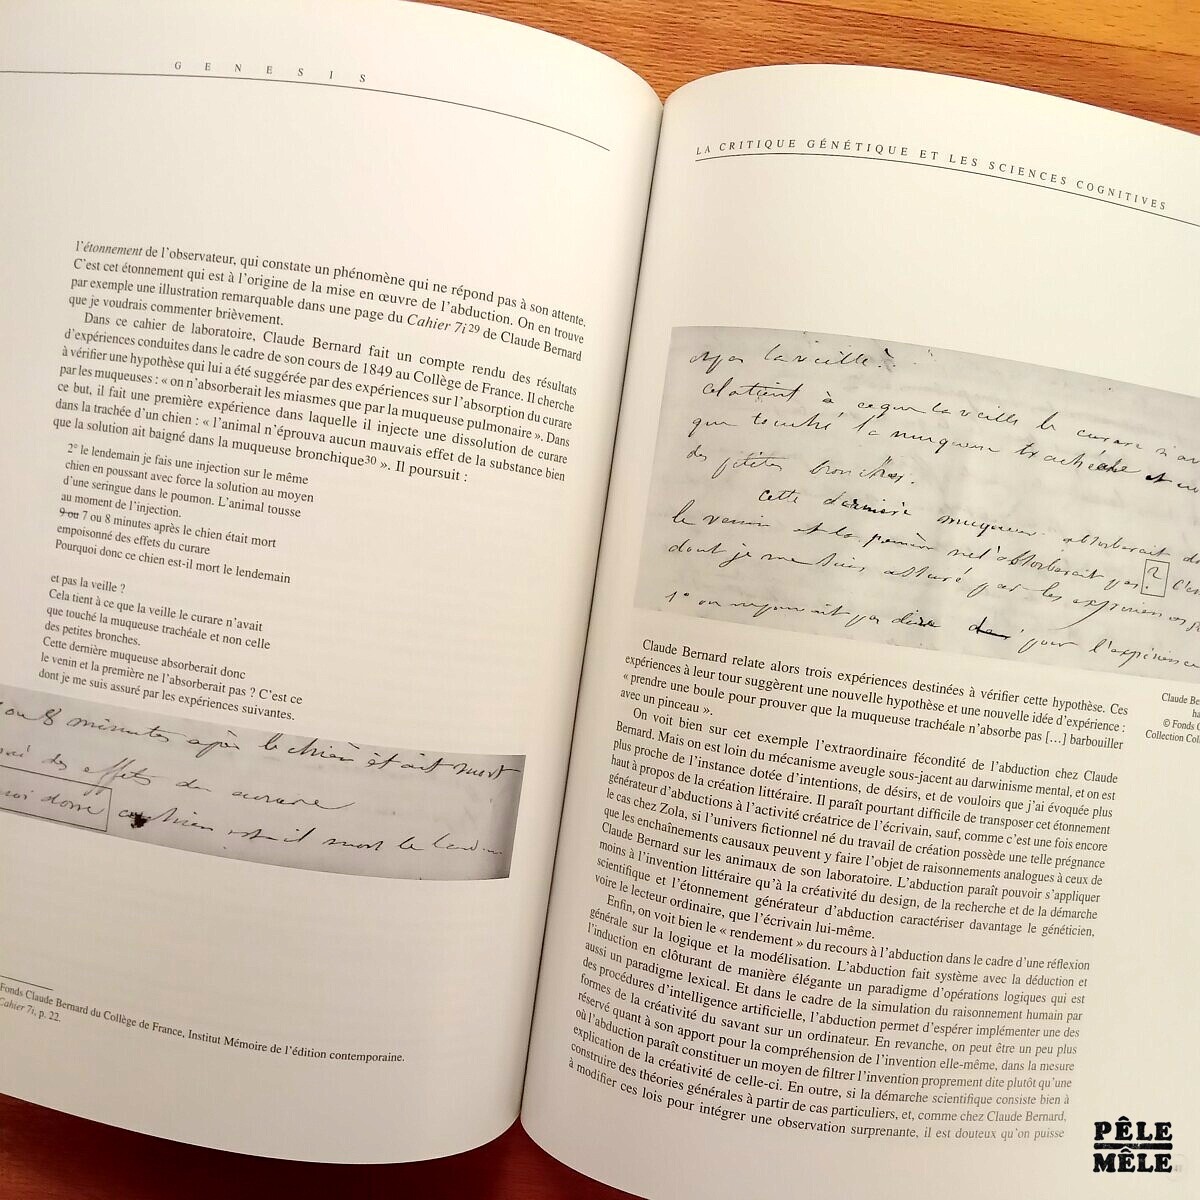 GENESIS
l'étonnement de l'observateur, qui constate un phénomène qui ne répond pas à son attente.
C'est cet étonnement qui est à l'origine de la mise en œuvre de l'abduction. On en trouve
par exemple une illustration remarquable dans une page du Cahier 7i29 de Claude Bernard
que je voudrais commenter brièvement.
Dans ce cahier de laboratoire, Claude Bernard fait un compte rendu des résultats
d'expériences conduites dans le cadre de son cours de 1849 au Collège de France. Il cherche
à vérifier une hypothèse qui lui a été suggérée par des expériences sur l'absorption du curare
par les muqueuses : « on n'absorberait les miasmes que par la muqueuse pulmonaire ». Dans
ce but, il fait une première expérience dans laquelle il injecte une dissolution de curare
dans la trachée d'un chien : « l'animal n'éprouva aucun mauvais effet de la substance bien
que la solution ait baigné dans la muqueuse bronchique30 ». Il poursuit :
2° le lendemain je fais une injection sur le même
chien en poussant avec force la solution au moyen
d'une seringue dans le poumon. L'animal tousse
au moment de l'injection.
9 ou 7 ou 8 minutes après le chien était mort
empoisonné des effets du curare
Pourquoi donc ce chien est-il mort le lendemain
et pas la veille ?
Cela tient à ce que la veille le curare n'avait
que touché la muqueuse trachéale et non celle
des petites bronches.
Cette dernière muqueuse absorberait donc
le venin et la première ne l'absorberait pas ? C'est ce
dont je me suis assuré par les expériences suivantes.
ou 8 minutes après le chien était mort
des effets du curare
donc chien est il mort le
Fonds Claude Bernard du Collège de France, Institut Mémoire de l'édition contemporaine.
Cahier 7i, p. 22.
LA CRITIQUE GÉNÉTIQUE ET LES SCIENCES COGNITIVES
pas la veille ?
cela tient à ce que la veille le curare n'av
que touché la muqueuse trachéale et
des petites bronches.
cette dernière muqueuse absorberait
le venin et la première ne l'absorberait pas ? C'est
dont je me suis assuré par les expériences
1° on ne pouvait pas dire pour l'expérience
Claude Be
ha
© Fonds C
Collection Coll
Claude Bernard relate alors trois expériences destinées à vérifier cette hypothèse. Ces
expériences à leur tour suggèrent une nouvelle hypothèse et une nouvelle idée d'expérience :
« prendre une boule pour prouver que la muqueuse trachéale n'absorbe pas […] barbouiller
avec un pinceau ».
On voit bien sur cet exemple l'extraordinaire fécondité de l'abduction chez Claude
Bernard. Mais on est loin du mécanisme aveugle sous-jacent au darwinisme mental, et on est
plus proche de l'instance dotée d'intentions, de désirs, et de vouloirs que j'ai évoquée plus
haut à propos de la création littéraire. Il paraît pourtant difficile de transposer cet étonnement
générateur d'abductions à l'activité créatrice de l'écrivain, sauf, comme c'est une fois encore
le cas chez Zola, si l'univers fictionnel né du travail de création possède une telle prégnance
que les enchaînements causaux peuvent y faire l'objet de raisonnements analogues à ceux de
Claude Bernard sur les animaux de son laboratoire. L'abduction paraît pouvoir s'appliquer
moins à l'invention littéraire qu'à la créativité du design, de la recherche et de la démarche
scientifique et l'étonnement générateur d'abduction caractériser davantage le généticien,
voire le lecteur ordinaire, que l'écrivain lui-même.
Enfin, on voit bien le « rendement » du recours à l'abduction dans le cadre d'une réflexion
générale sur la logique et la modélisation. L'abduction fait système avec la déduction et
l'induction en clôturant de manière élégante un paradigme d'opérations logiques qui est
aussi un paradigme lexical. Et dans le cadre de la simulation du raisonnement humain par
des procédures d'intelligence artificielle, l'abduction permet d'espérer implémenter une des
formes de la créativité du savant sur un ordinateur. En revanche, on peut être un peu plus
réservé quant à son apport pour la compréhension de l'invention elle-même, dans la mesure
où l'abduction paraît constituer un moyen de filtrer l'invention proprement dite plutôt qu'une
explication de la créativité de celle-ci. En outre, si la démarche scientifique consiste bien à
construire des théories générales à partir de cas particuliers, et, comme chez Claude Bernard,
à modifier ces lois pour intégrer une observation surprenante, il est douteux qu'on puisse
PÊLE
MÊLE